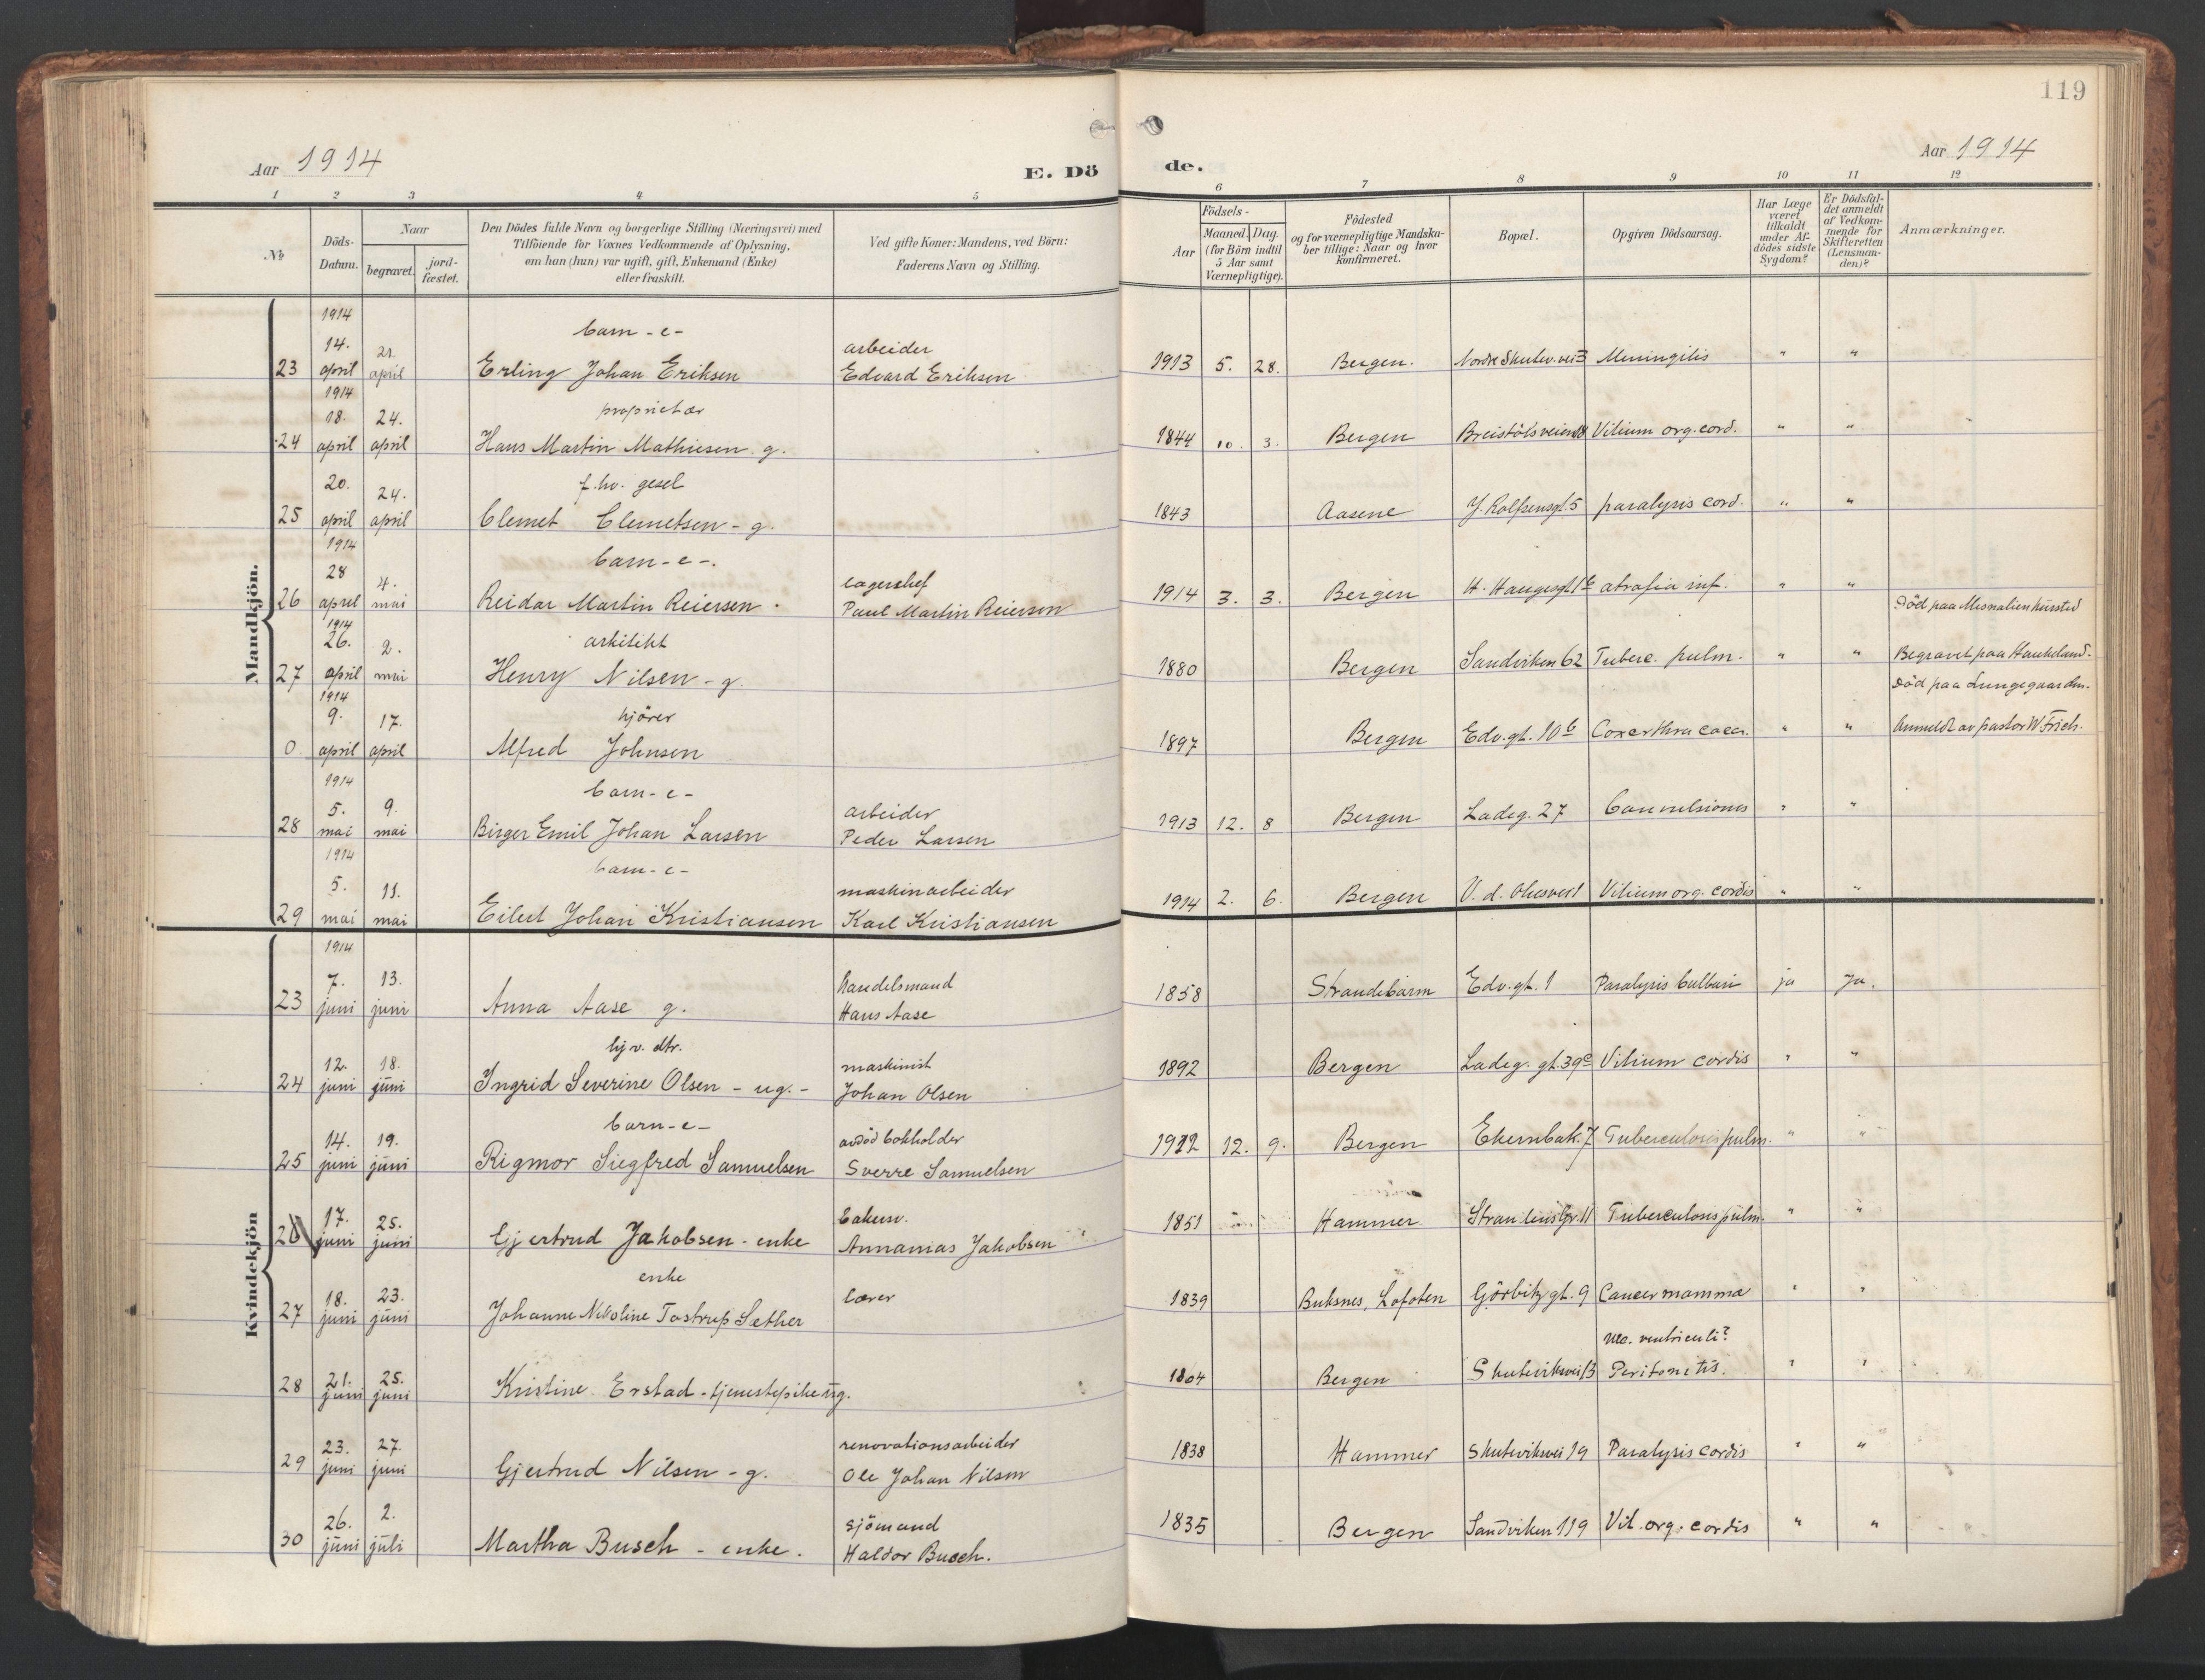 119
Aar 1914
E. Dö
de.
Aar 1914
1 2 3 4 5 6 7 8 9 10 11 12
No
Döds-Datum.
Naar
begravet.
jord-fæstet.
Den Dödes fulde Navn og borgerlige Stilling (Næringsvei) med
Tilföiende for Voxnes Vedkommende af Oplysning,
om han (hun) var ugift, gift, Enkemand (Enke)
eller fraskilt.
Ved gifte Koner: Mandens, ved Börn:
Faderens Navn og Stilling.
Födsels-
Aar
Maaned. Dag.
(for Börn indtil
5 Aar samt
Værnepligtige).
Födested
og for værnepligtige Mandska-
ber tillige: Naar og hvor
Konfirmeret.
Bopæl.
Opgiven Dödsaarsag.
Har Læge
været
tilkaldt
under Af-
dödes sidste
Sygdom?
Er Dödsfal-
det anmeldt
af Vedkom-
mende for
Skifteretten
(Lensman-
den)?
Anmærkninger.
Mandkjön.
1914
barn - e -
23 14. april 21. april Erling Johan Eriksen arbeider Edvard Eriksen 1913 5. 28. Bergen. Nordre Skutev.vei 3 Meningitis " "
1914
proprietær
24 18. april 24. april Hans Martin Mathiesen g. 1844 10. 3. Bergen Breistölsveien 18 Vitium org. cord. " "
f. hv. gesel
25 20. april 24. april Clemet Clemetsen - g. 1843 Aasene J. Rolfsensgt. 5 paralysis cord. " "
1914
barn - e -.
26 28 april 4. mai Reidar Martin Reiersen. lagerchef Paul Martin Reiersen 1914 3. 3. Bergen H. Haugesgt. 1b atrofia inf. " "
Död paa Mesnalien kursted
1914
arkitekt
27 26. april 2. mai Henry Nilsen - g. 1880 Bergen Sandviken 62 Tuberc. pulm. " " Begravet paa Haukeland.
Död paa Lungegaarden.
1914
hjörer
0 9. april 17. april Alfred Johnsen 1897 Bergen Edv. gt. 10b " " Anmeldt av pastor W. Frich.
1914
barn - e -
28 5. mai 9. mai Birger Emil Johan Larsen arbeider Peder Larsen 1913 12. 8 Bergen Ladeg. 27 Convulsiones " "
1914
barn - e -
29 5. mai 11. mai Eilert Johan Kristiansen maskinarbeider Karl Kristiansen 1914 2. 6. Bergen Vitium org. cordis " "
Kvindekjön
1914
23 7. juni 13. juni Anna Aase g. handelsmand Hans Aase 1858 Strandebarm Edv. gt. 1 Paralysis bulbari ja ja.
hjv. dtr.
24 12. juni 18. juni Ingrid Severine Olsen - ug. - maskinist Johan Olsen 1892 Bergen Ladeg. gt. 39c Vitium cordis " "
barn - e -
25 14. juni 19. juni Rigmor Siegfred Samuelsen avdöd bokholder Sverre Samuelsen 1912 12. 9. Bergen Ekernbak. 7 Tuberculosis pulm. " "
26 17. juni 25. juni Gjertrud Jakobsen - enke bakersv. Annanias Jakobsen 1851 Hammer Tuberculosis pulm. " "
enke
27 18. juni 23. juni Johanne Nikoline Tostrup Sether lærer 1839 Buksnes, Lofoten Görbitzgt. 9 Cancer mamma " "
28 21. juni 25. juni Kristine Erstad - tjenestepike ug. Bergen Skuteviksvei 13 Ulc. ventriculi? Peritonitis. " "
29 23. juni 27. juni Gjertrud Nilsen - g. renovationsarbeider Ole Johan Nilsen 1838 Hammer Skuteviksvei 19 Paralysis cordis " "
30 26. juni 2. juli Martha Busch - enke. sjömand Haldor Busch. 1835 Bergen Sandviken 119 Vit. org. cordis " "